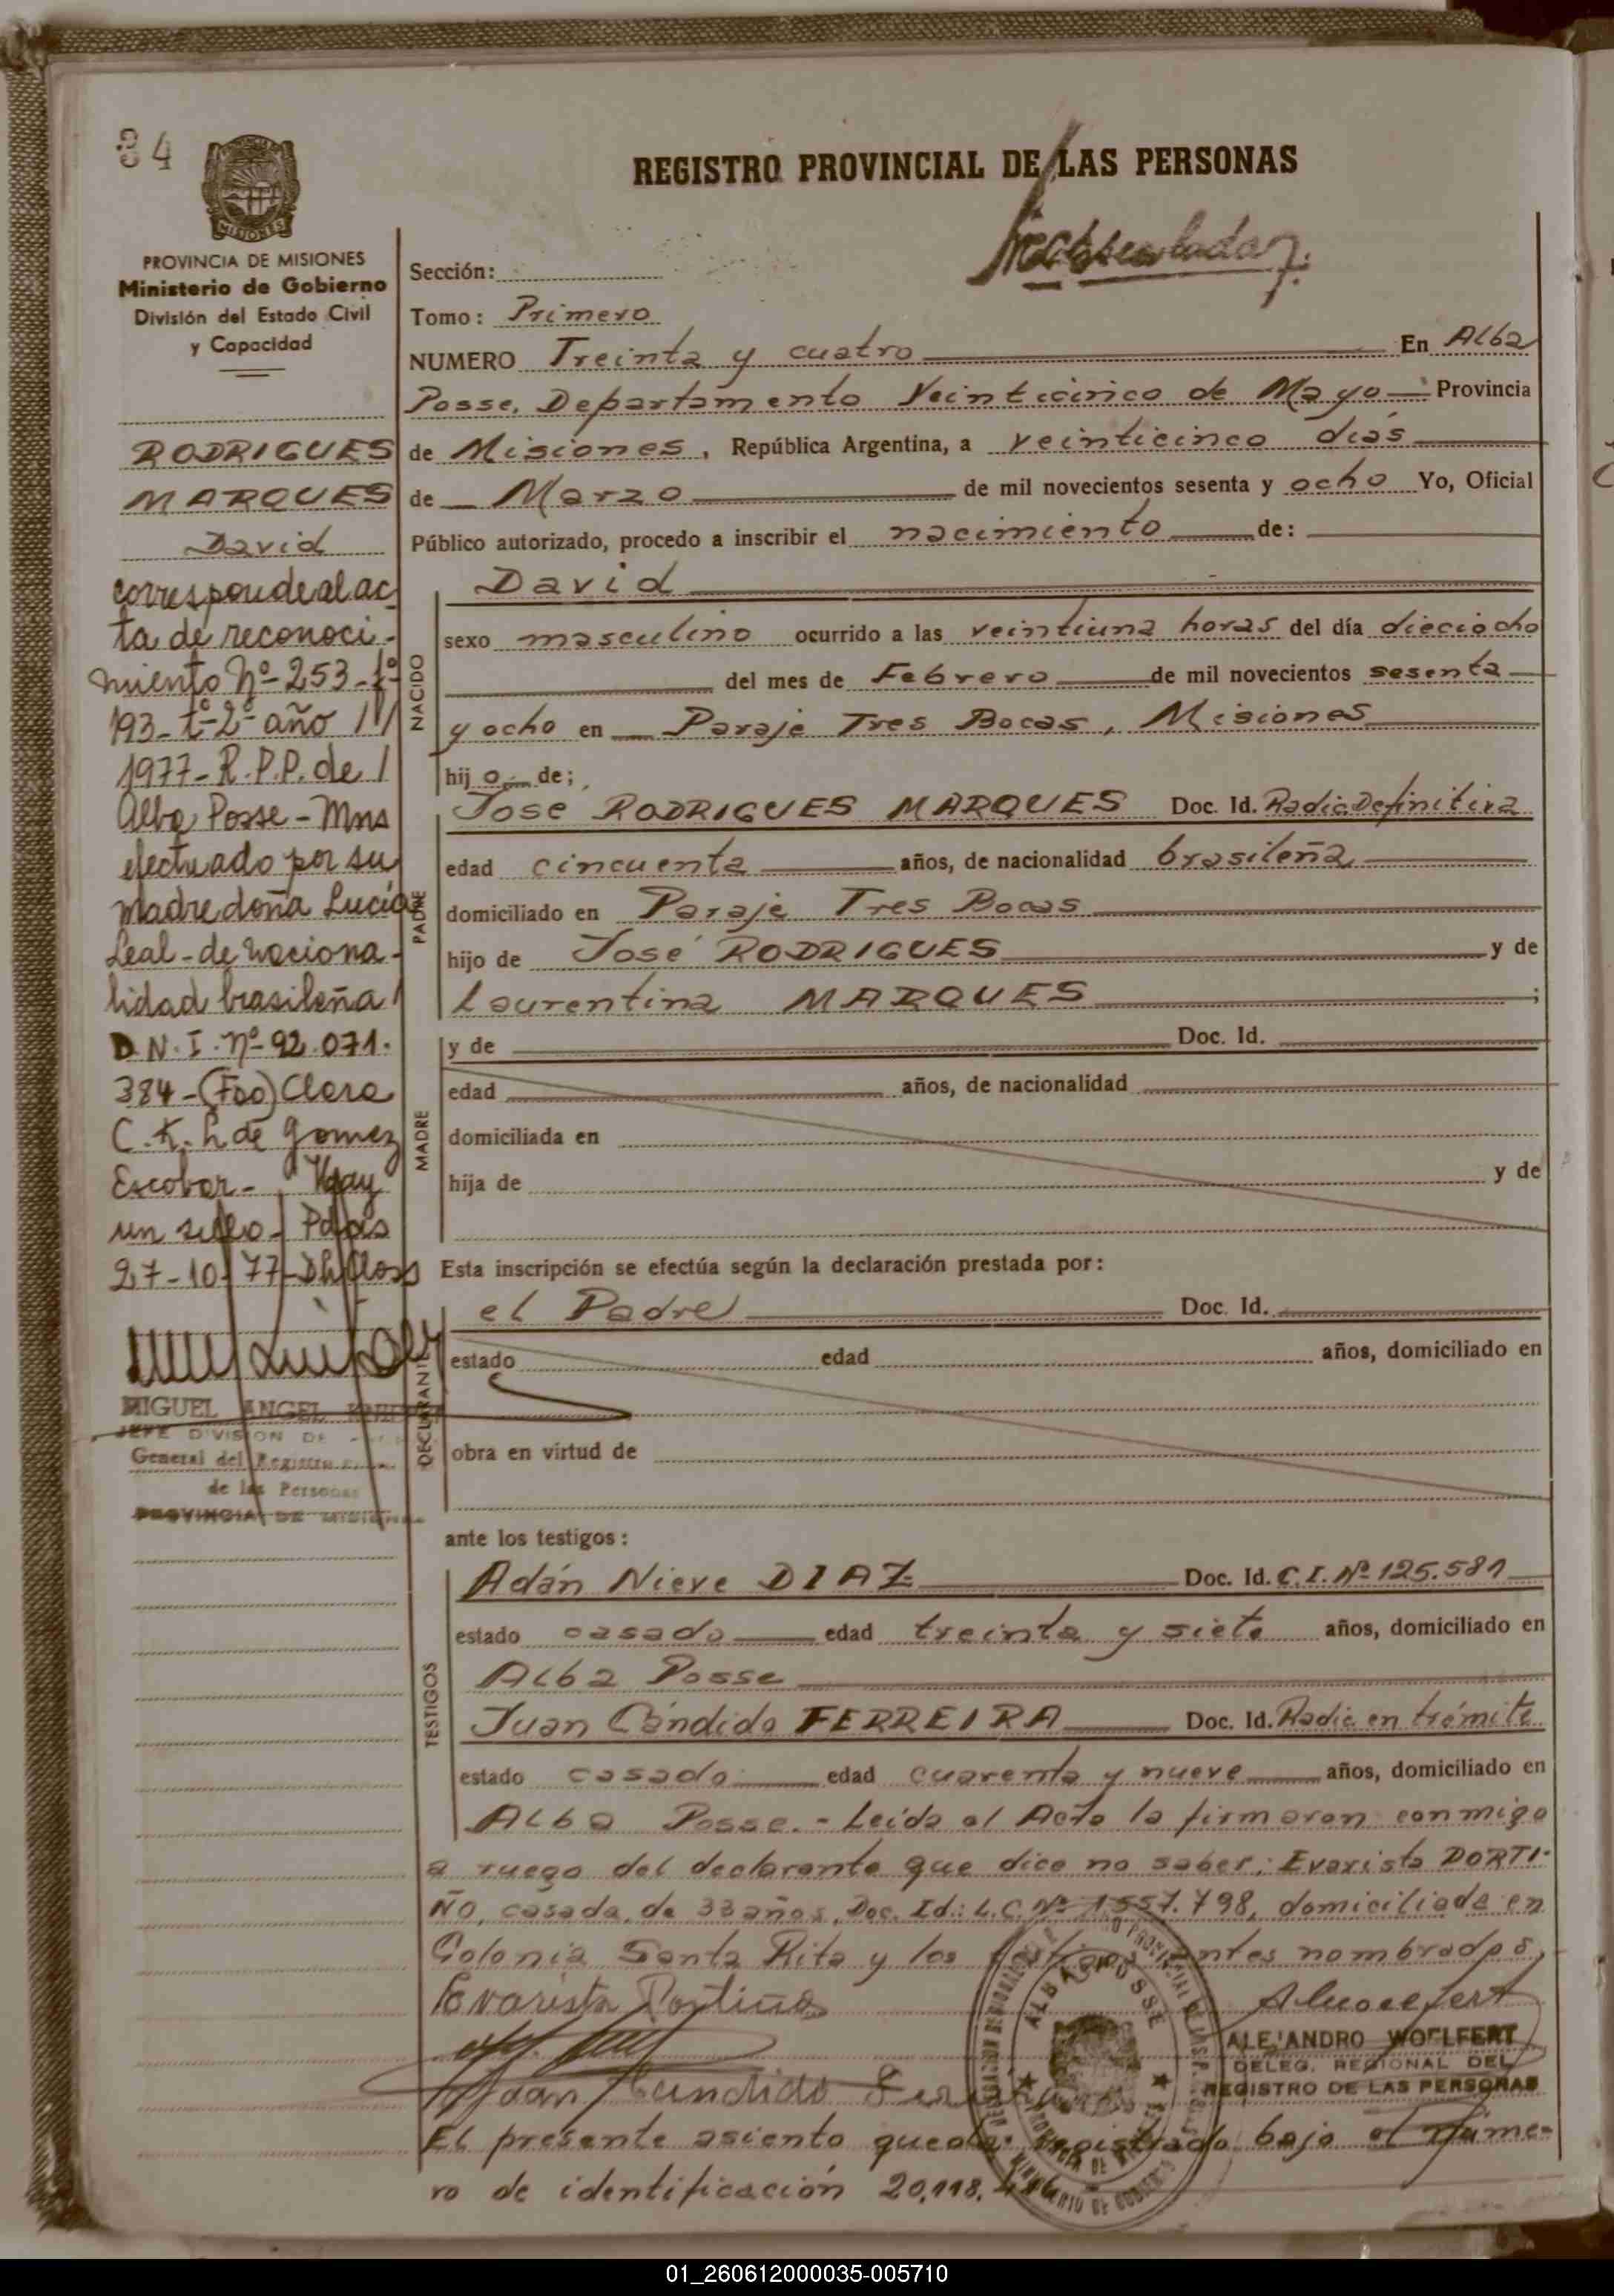 34
REGISTRO PROVINCIAL DE LAS PERSONAS
MISIONES
PROVINCIA DE MISIONES
Ministerio de Gobierno
División del Estado Civil
y Capacidad
RODRIGUES
MARQUES
David
corresponde al ac
ta de reconoci-
miento Nº-253-fº
193-tº-2º-año //
1977-R.P.P. de /
Alba Posse-Mns
efectuado por su
madre doña Lucía
Leal-de naciona-
lidad brasileña/
D.N.I. Nº-92.071.
384-(Fdo) Clara
C. K. L. de Gomez
Escobar- Hay
un sello- Pdas
27-10-77-
MIGUEL ANGEL
JEFE DIVISION DE
General del Registro
de las Personas
PROVINCIA DE MISIONES
Sección:
Tomo: Primero
NUMERO Treinta y cuatro En Alba
Posse, Departamento Veinticinco de Mayo Provincia
de Misiones, República Argentina, a veinticinco días
de Marzo de mil novecientos sesenta y ocho Yo, Oficial
Público autorizado, procedo a inscribir el nacimiento de:
NACIDO
David
sexo masculino ocurrido a las veintiuna horas del día dieciocho
del mes de Febrero de mil novecientos sesenta
y ocho en Paraje Tres Bocas, Misiones
hijo de;
PADRE
Jose RODRIGUES MARQUES Doc. Id. Radic. Definitiva
edad cincuenta años, de nacionalidad brasileña
domiciliado en Paraje Tres Bocas
hijo de José RODRIGUES y de
Laurentina MARQUES;
MADRE
y de Doc. Id.
edad años, de nacionalidad
domiciliada en
hija de y de
Esta inscripción se efectúa según la declaración prestada por:
DECLARANTE
el Padre Doc. Id.
estado edad años, domiciliado en
obra en virtud de
ante los testigos:
TESTIGOS
Adán Nieve DIAZ Doc. Id. C.I. Nº 125.581
estado casado edad treinta y siete años, domiciliado en
Alba Posse
Juan Cándido FERREIRA Doc. Id. Radic. en trámite
estado casado edad cuarenta y nueve años, domiciliado en
Alba Posse.- Leída el Acta la firmaron conmigo
a ruego del declarante que dice no saber; Evarista DORTI-
ÑO, casada, de 33 años, Doc. Id.: L.C. Nº 1557.798, domiciliada en
Colonia Santa Rita y los nombrados,
Evarista Dortiño
Juan Candido
ALBA POSSE
ALEJANDRO WOELFERT
DELEG. REGIONAL DEL
REGISTRO DE LAS PERSONAS
El presente asiento queda registrado bajo el núme-
ro de identificación 20.118.
01_260612000035-005710